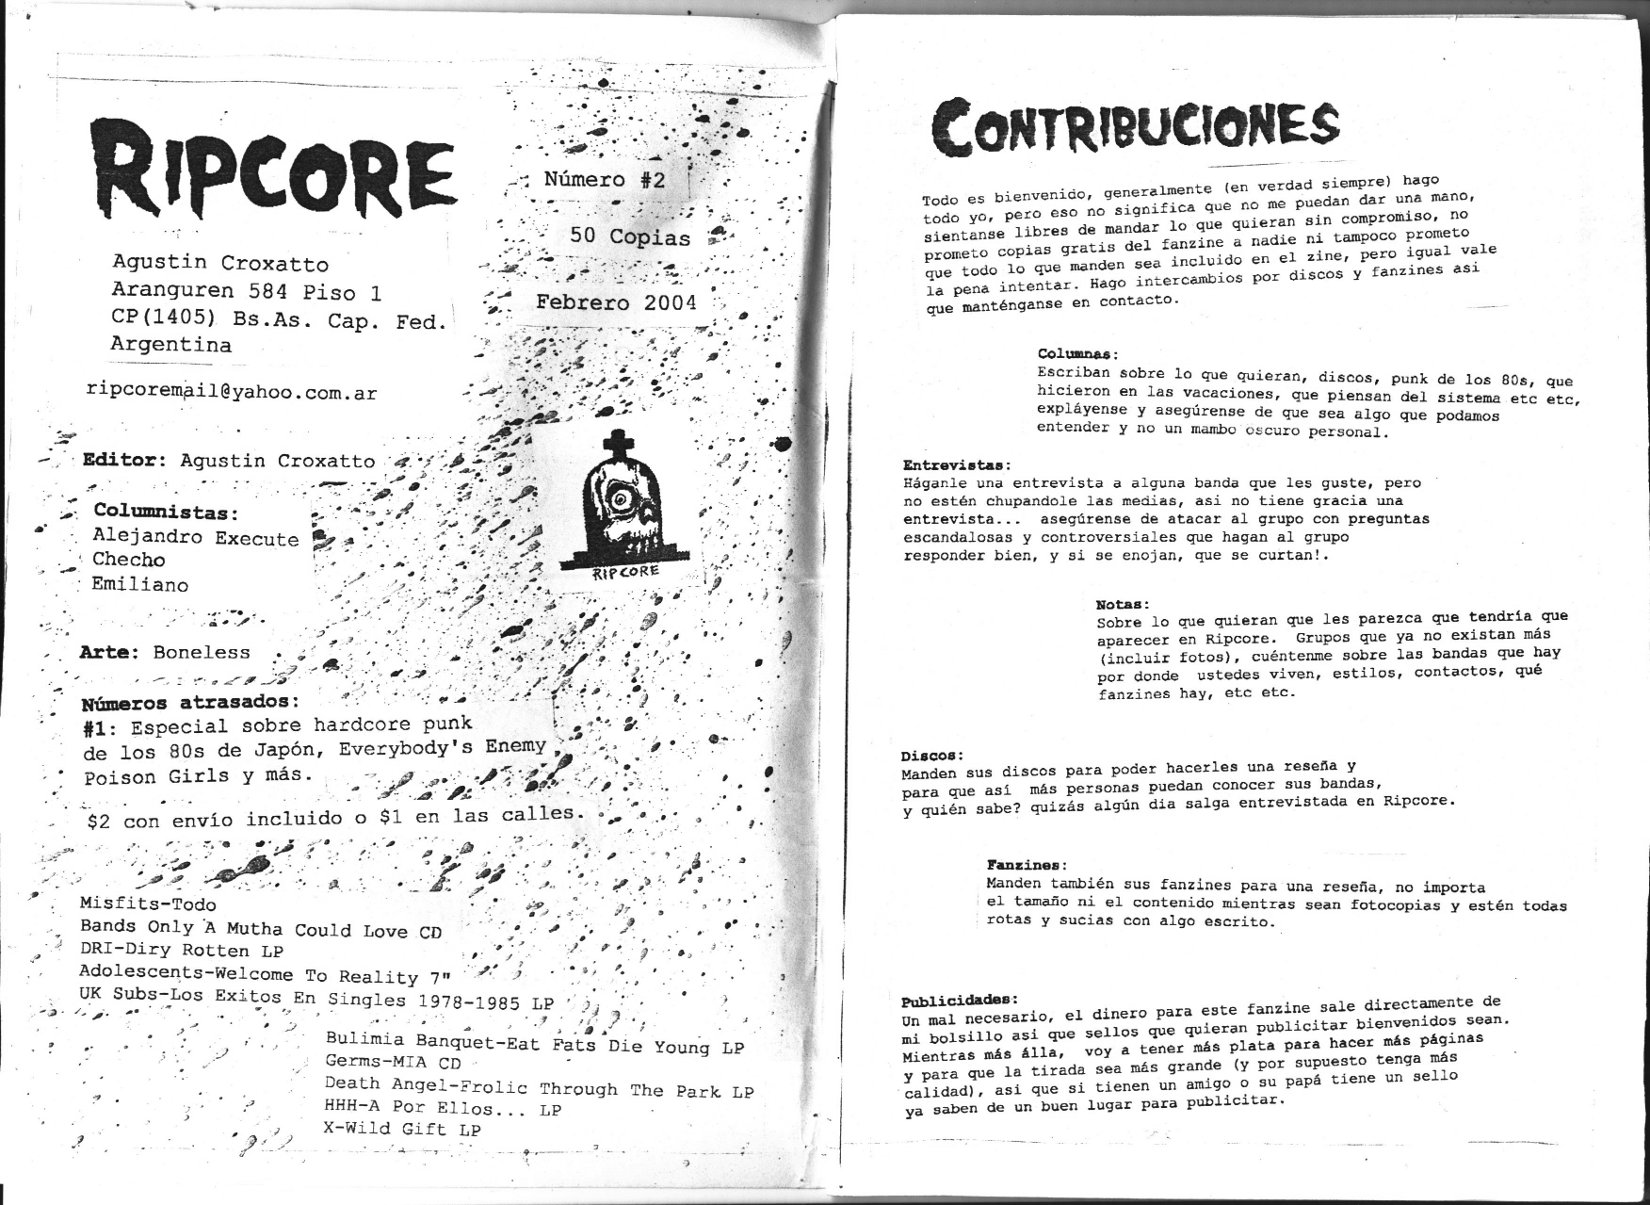 RIPCORE
Número #2
50 Copias
Febrero 2004
Agustin Croxatto
Aranguren 584 Piso 1
CP(1405) Bs.As. Cap. Fed.
Argentina
ripcoremail@yahoo.com.ar
Editor: Agustin Croxatto
Columnistas:
Alejandro Execute
Checho
Emiliano
RIPCORE
Arte: Boneless
Números atrasados:
#1: Especial sobre hardcore punk
de los 80s de Japón, Everybody's Enemy
Poison Girls y más.
$2 con envío incluido o $1 en las calles.
Misfits-Todo
Bands Only A Mutha Could Love CD
DRI-Diry Rotten LP
Adolescents-Welcome To Reality 7"
UK Subs-Los Exitos En Singles 1978-1985 LP
Bulimia Banquet-Eat Fats Die Young LP
Germs-MIA CD
Death Angel-Frolic Through The Park LP
HHH-A Por Ellos... LP
X-Wild Gift LP
CONTRIBUCIONES
Todo es bienvenido, generalmente (en verdad siempre) hago
todo yo, pero eso no significa que no me puedan dar una mano,
sientanse libres de mandar lo que quieran sin compromiso, no
prometo copias gratis del fanzine a nadie ni tampoco prometo
que todo lo que manden sea incluido en el zine, pero igual vale
la pena intentar. Hago intercambios por discos y fanzines asi
que manténganse en contacto.
Columnas:
Escriban sobre lo que quieran, discos, punk de los 80s, que
hicieron en las vacaciones, que piensan del sistema etc etc,
expláyense y asegúrense de que sea algo que podamos
entender y no un mambo oscuro personal.
Entrevistas:
Háganle una entrevista a alguna banda que les guste, pero
no estén chupandole las medias, asi no tiene gracia una
entrevista... asegúrense de atacar al grupo con preguntas
escandalosas y controversiales que hagan al grupo
responder bien, y si se enojan, que se curtan!.
Notas:
Sobre lo que quieran que les parezca que tendría que
aparecer en Ripcore. Grupos que ya no existan más
(incluir fotos), cuéntenme sobre las bandas que hay
por donde ustedes viven, estilos, contactos, qué
fanzines hay, etc etc.
Discos:
Manden sus discos para poder hacerles una reseña y
para que así más personas puedan conocer sus bandas,
y quién sabe? quizás algún dia salga entrevistada en Ripcore.
Fanzines:
Manden también sus fanzines para una reseña, no importa
el tamaño ni el contenido mientras sean fotocopias y estén todas
rotas y sucias con algo escrito.
Publicidades:
Un mal necesario, el dinero para este fanzine sale directamente de
mi bolsillo asi que sellos que quieran publicitar bienvenidos sean.
Mientras más álla, voy a tener más plata para hacer más páginas
y para que la tirada sea más grande (y por supuesto tenga más
calidad), asi que si tienen un amigo o su papá tiene un sello
ya saben de un buen lugar para publicitar.